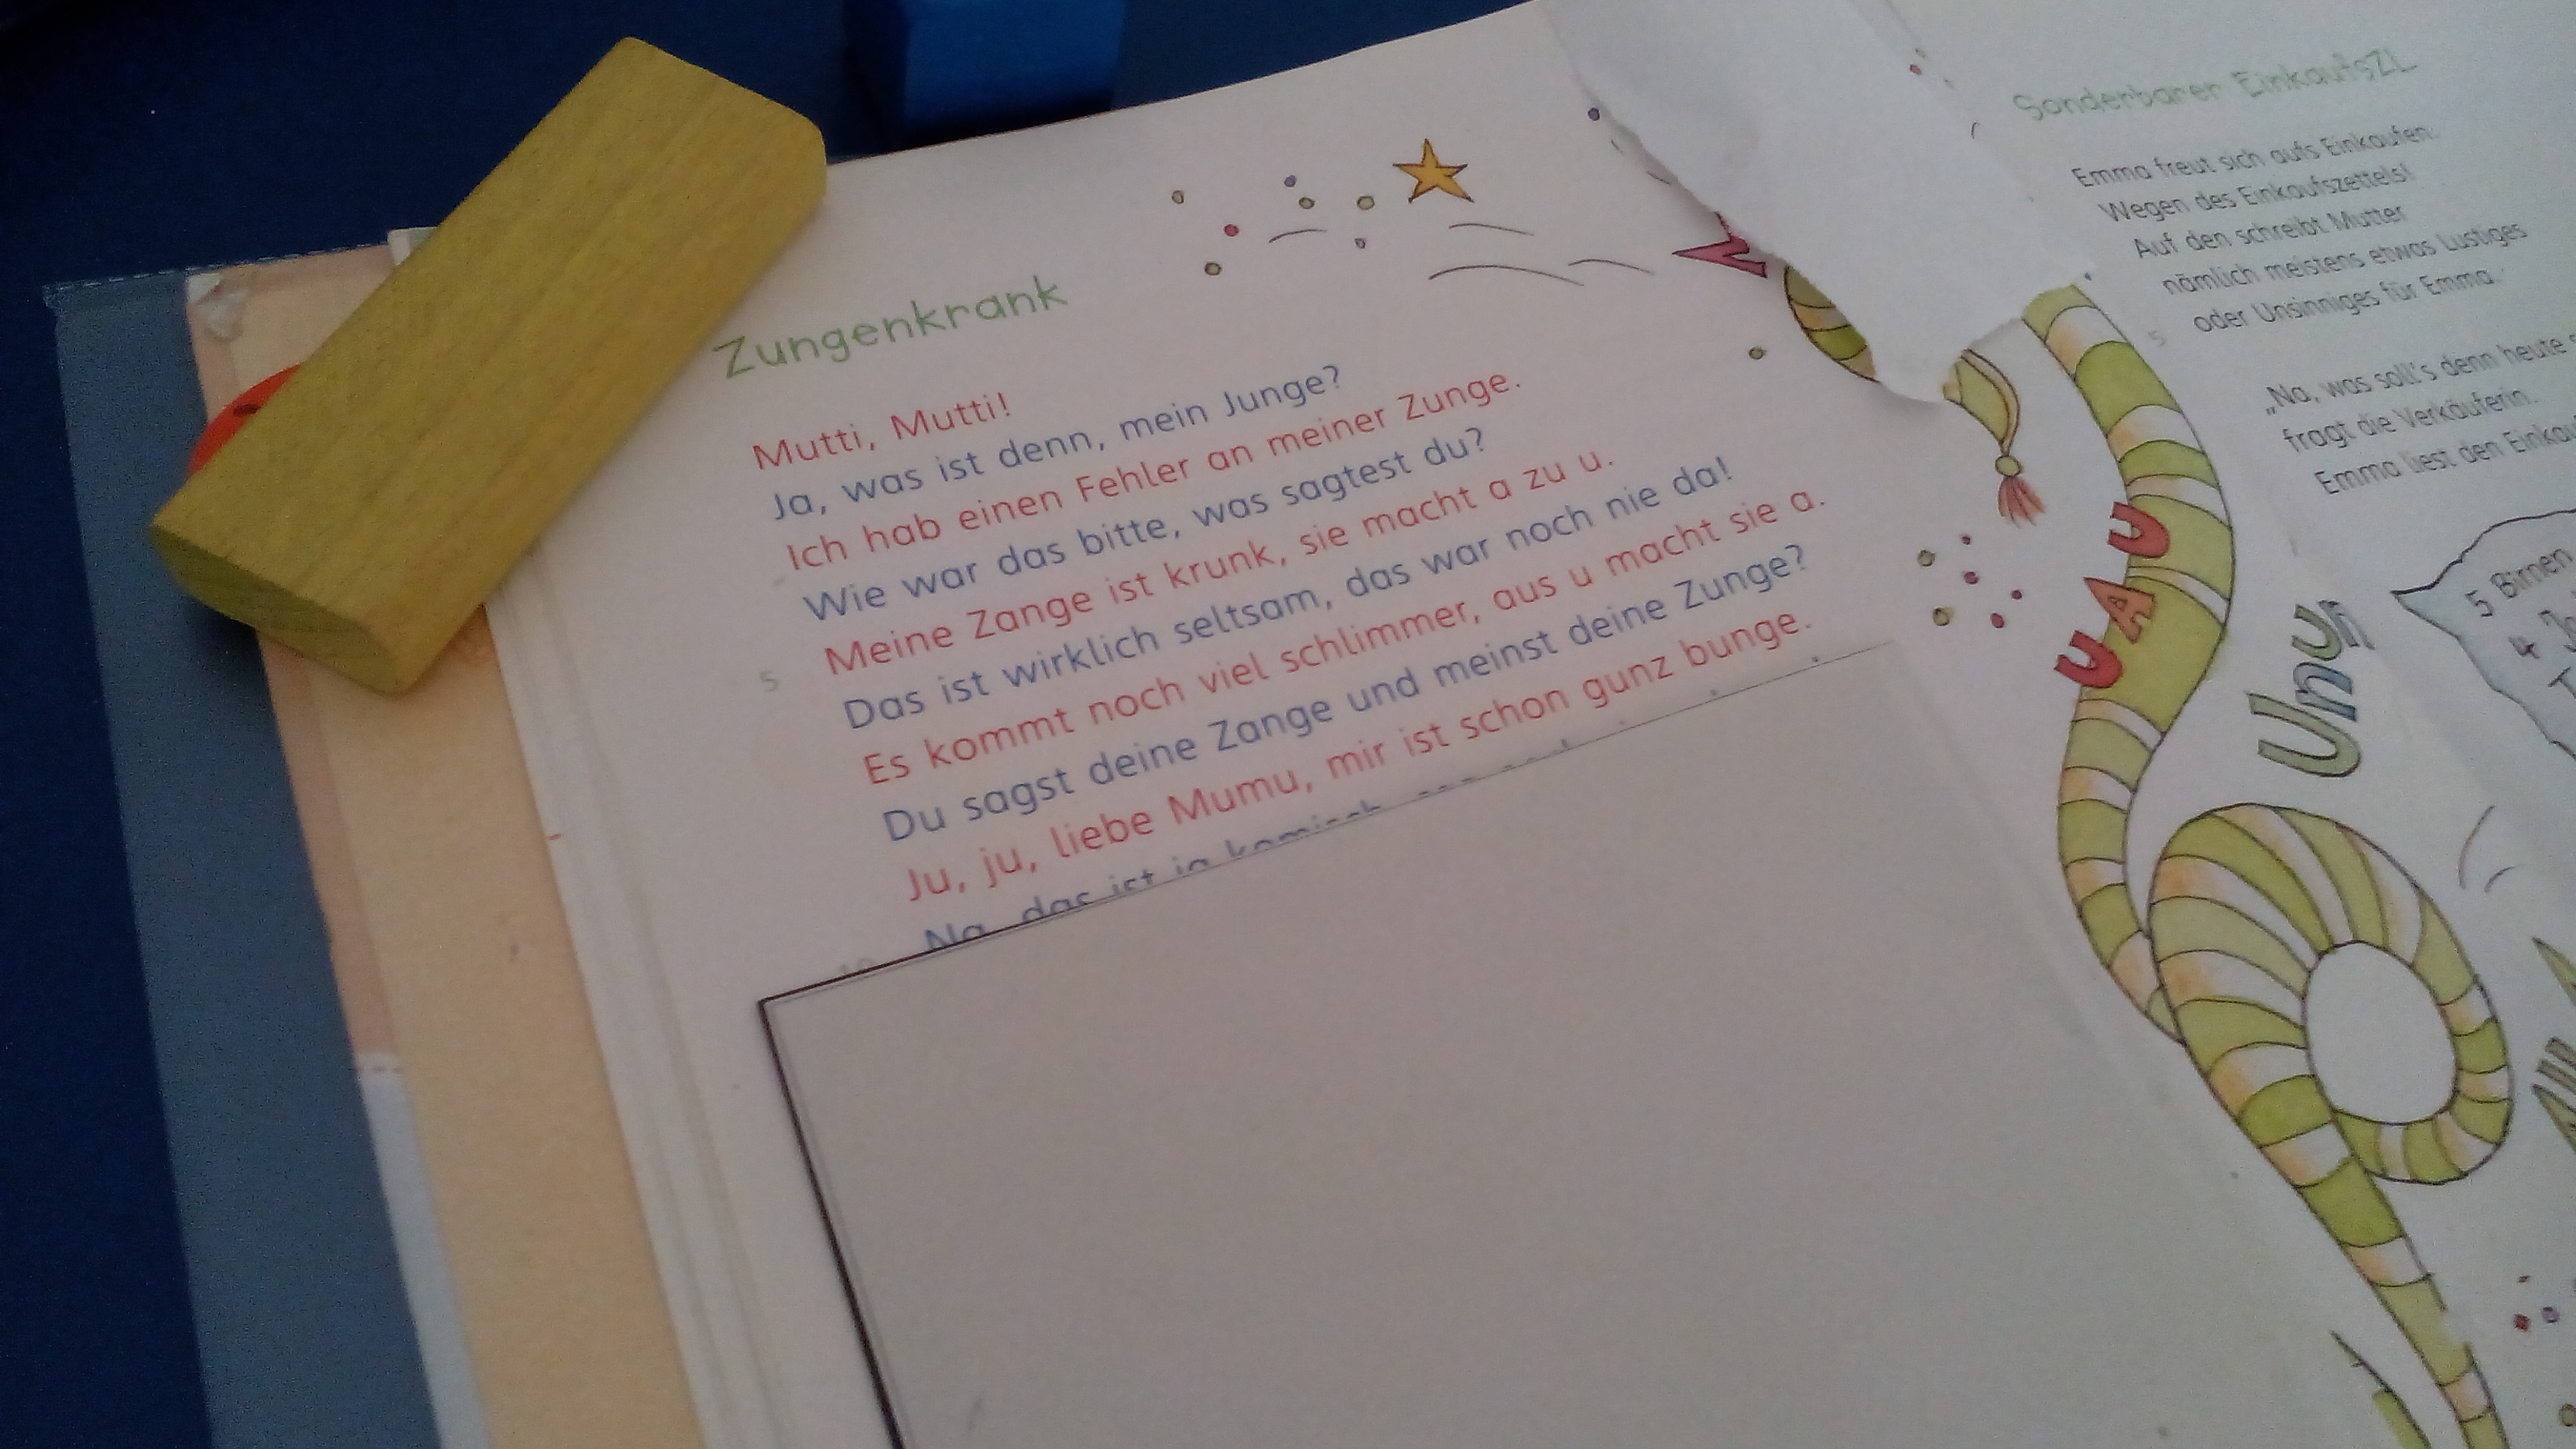 Zungenkrank
Mutti, Mutti!
Ja, was ist denn, mein Junge?
Ich hab einen Fehler an meiner Zunge.
Wie war das bitte, was sagtest du?
5 Meine Zange ist krunk, sie macht a zu u.
Das ist wirklich seltsam, das war noch nie da!
Es kommt noch viel schlimmer, aus u macht sie a.
Du sagst deine Zange und meinst deine Zunge?
Ju, ju, liebe Mumu, mir ist schon gunz bunge.
Na, das ist ja komisch
U A U
Sonderbarer
Emma freut sich aufs Einkaufen:
Wegen des Einkaufszettels!
Auf den schreibt Mutter
nämlich meistens etwas Lustiges
5 oder Unsinniges für Emma.
„Na, was soll's denn heute
fragt die Verkäuferin.
Emma liest den
5 Birnen
4